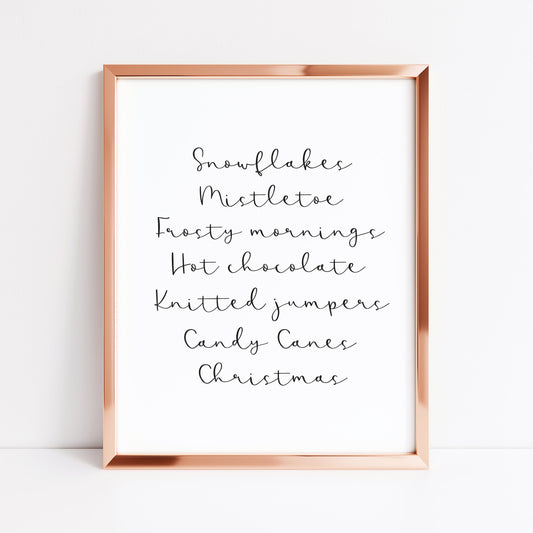 Snowflakes
Mistletoe
Frosty mornings
Hot chocolate
Knitted jumpers
Candy Canes
Christmas